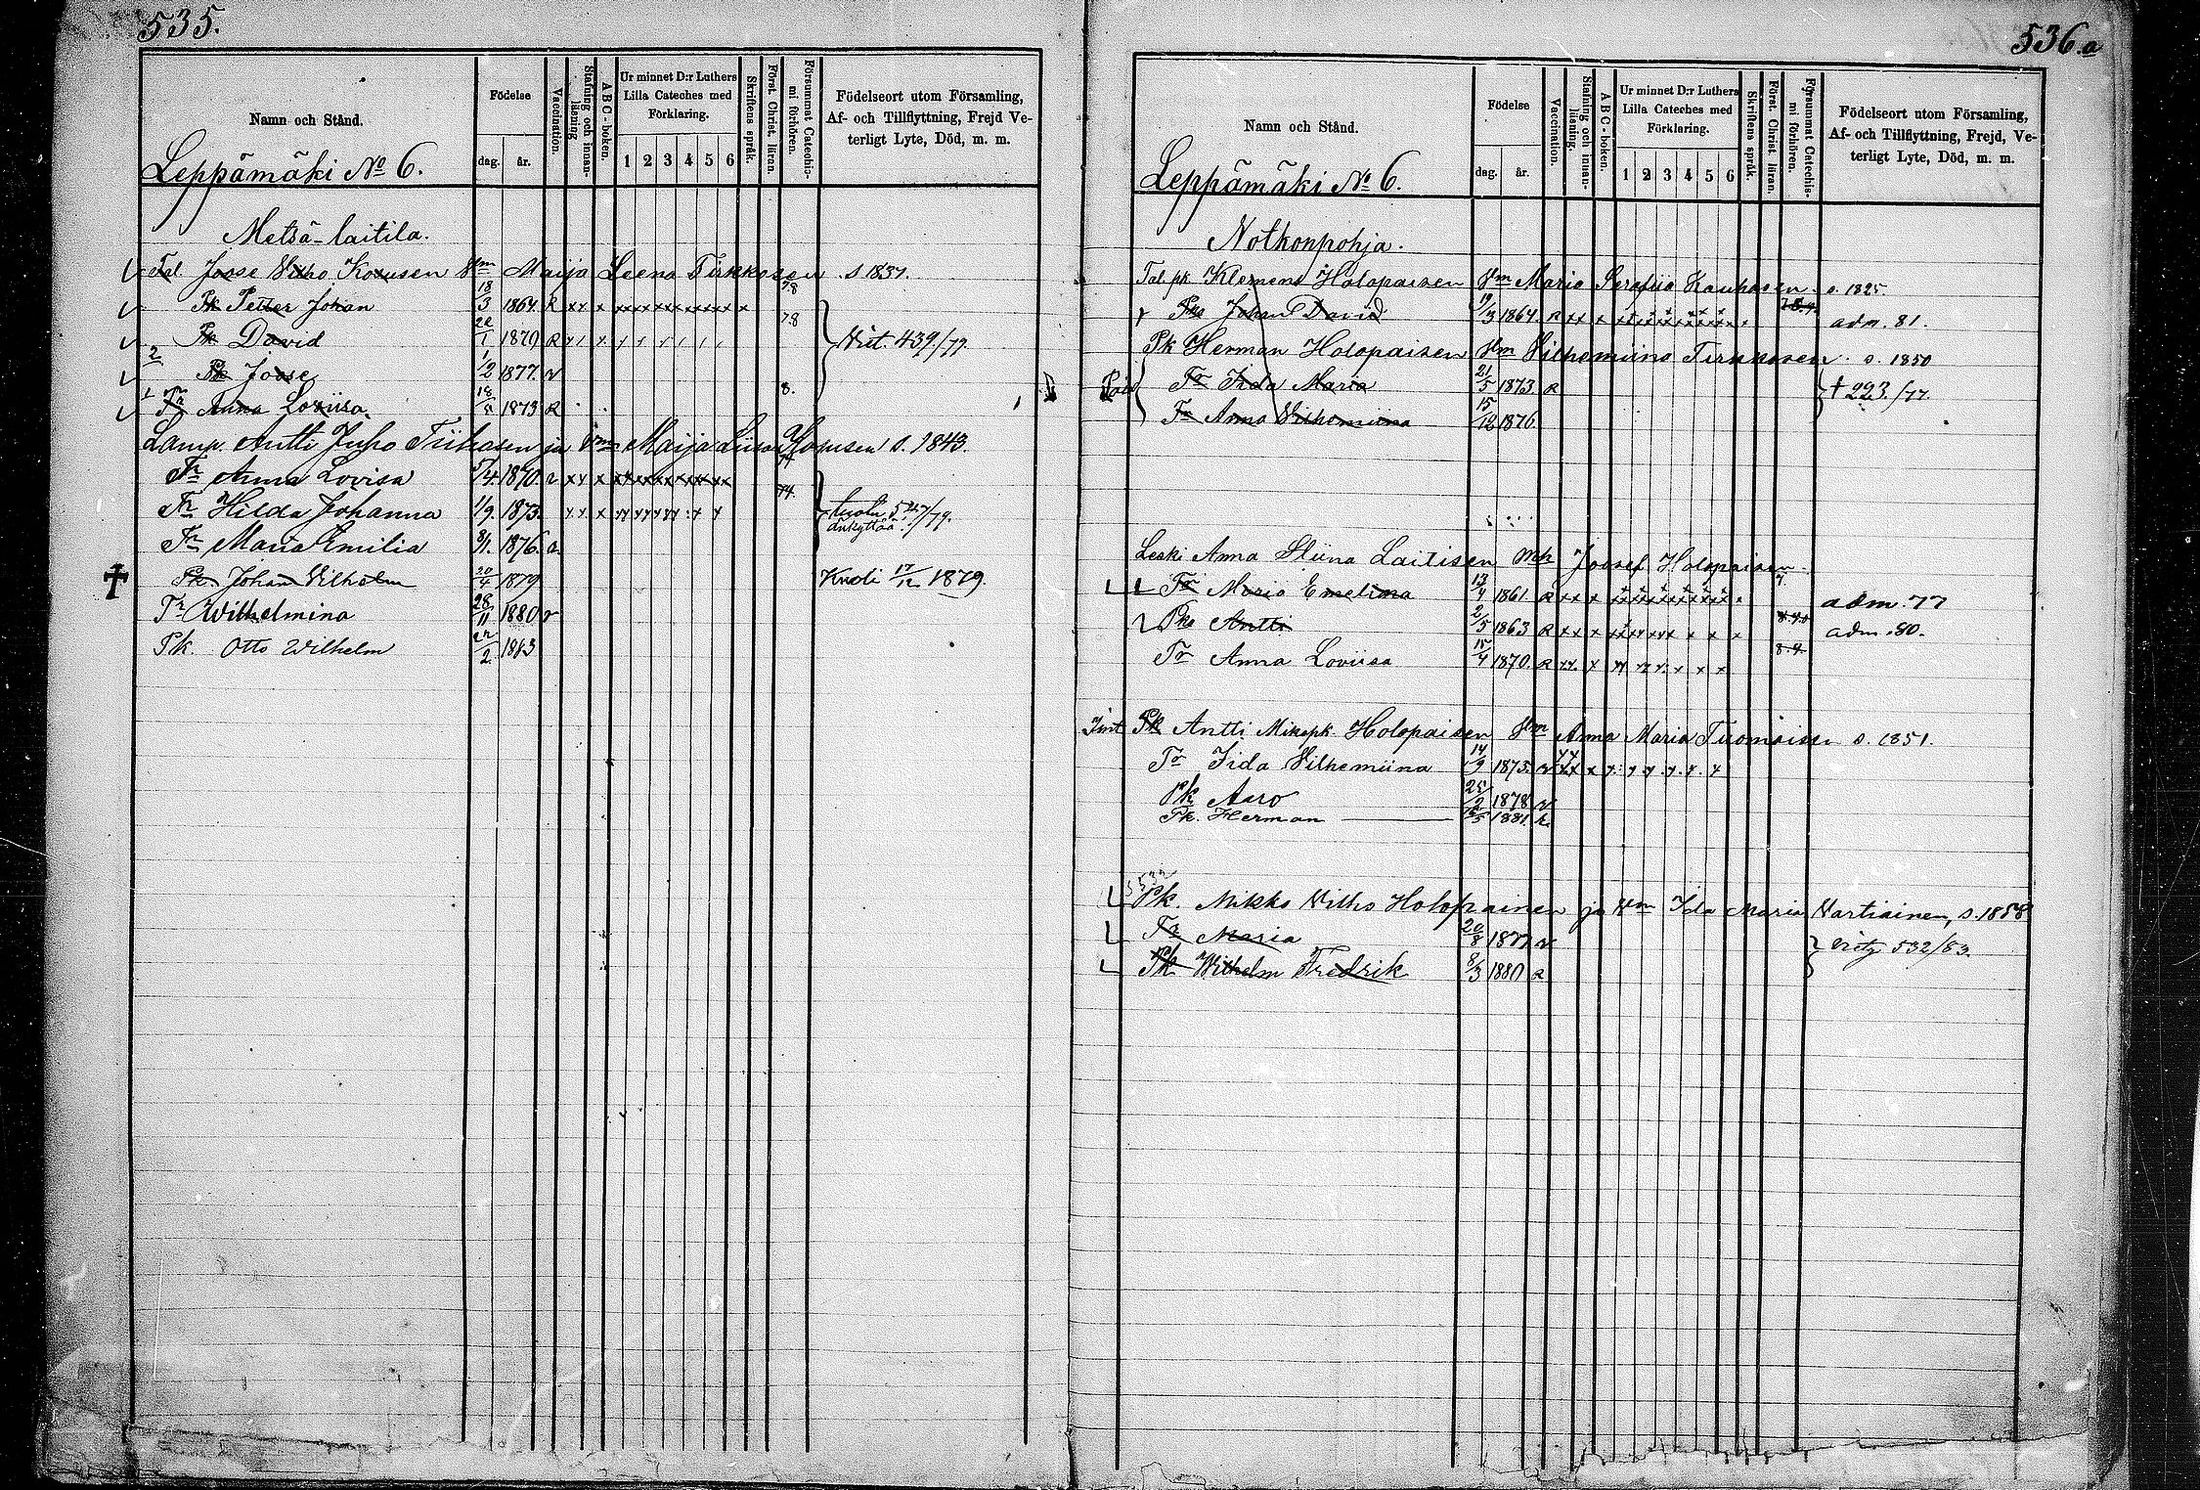 535.
Namn och Stånd.
Födelse
dag.
år.
Vaccination.
Stafning och innan-
läsning
ABC-boken.
Ur minnet D:r Luthers
Lilla Cateches med
Förklaring.
1 2 3 4 5 6
Skriftens språk.
Först. Christ. läran.
Försummat Catechis-
mi förhören.
Födelseort utom Församling,
Af- och Tillflyttning, Frejd Ve-
terligt Lyte, Död, m. m.
Leppämäki No 6.
Metsä-laitila.
Tal. Josse Wilho Kosusen Vm Maija Leena Tirkkosen s 1837.
Pk Petter Johan 18/3 1864 R 78
Pk David 1/1 1870 R 78 Wit. 439/77
Pk Josse 1/2 1877. v
Tr Anna Loviisa 18/8 1873 R 8.
Lamp. Antti Juho Tiihosen ja Vm Maija Liisa s. 1843.
Tr Anna Lovisa 5/4. 1870. v
Tr Hilda Johanna 1/9. 1873. 74. /79.
Tr Maria Emilia 8/1. 1876.
Pk Johan Vilhelm 20/4 1879 Kuoli 17/12 1879.
Tr Wilhelmina 28/11 1880 v
Pk. Otto Wilhelm 22/2 1883
536.a
Namn och Stånd.
Födelse
dag.
år.
Vaccination.
Stafning och innan-
läsning.
ABC-boken.
Ur minnet D:r Luthers
Lilla Cateches med
Förklaring.
1 2 3 4 5 6
Skriftens språk.
Först. Christ. läran.
Försummat Catechis-
mi förhören.
Födelseort utom Församling,
Af- och Tillflyttning, Frejd, Ve-
terligt Lyte, Död, m. m.
Leppämäki No 6.
Notkonpohja.
Tal. pk Klemens Holopaisen Vm Maria Serafia Kauhasen s. 1825
Pko Johan David 19/3 1864. R adm. 81.
Pk Herman Holopaisen Vm Vilhemiina Tirkkosen s. 1850
Tr Iida Maria 21/5 1873. R † 223./77.
Tr Anna Vilhemiina 15/12 1876
Leski Anna Stiina Laitisen Mh Joosef Holopaisen
Tr Maria Emeliina 13/4 1861. R adm. 77
Pko Antti 2/5 1863 R adm. 80.
Tr Anna Loviisa 15/4 1870. R 8.9.
Pk Antti Mikopk. Holopaisen Vm Anna Maria Tuomaisen s. 1851.
Tr Iida Vilhemiina 14/9 1875. v
Pk Aaro 25/2 1878. v
Pk. Herman 1881. R.
Pk. Mikko Wilho Holopainen ja Vm Ida Maria Vartiainen, s. 1858
Tr Maria 20/8 1877. v 532/83.
Pk Wilhelm Fredrik 8/3 1880 R